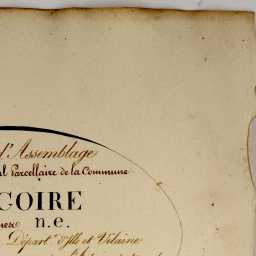 d'Assemblage
l Parcellaire de la Commune
GOIRE
n.e.
Départ.t d'Ille et Vilaine